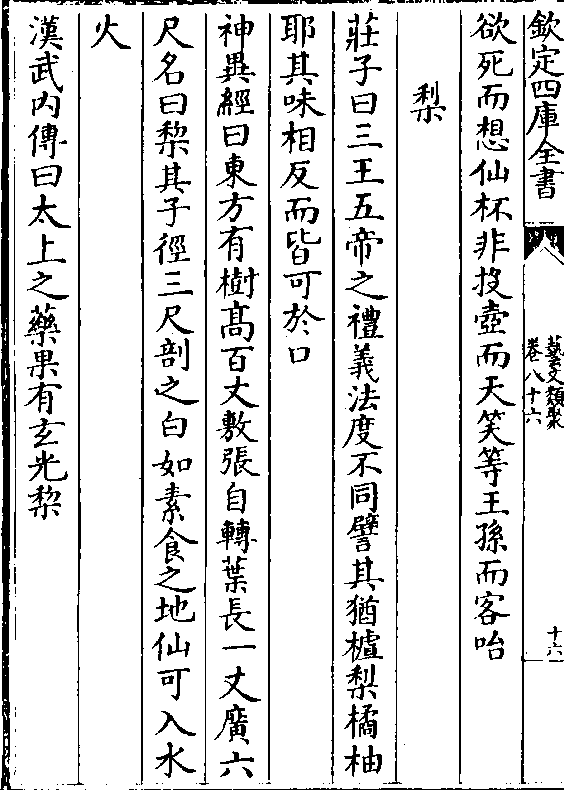 欽定四庫全書
藝文類聚
卷八十六
十六
欲死而想仙杯非投壺而天笑等王孫而客咍
梨
莊子曰三王五帝之禮義法度不同譬其猶樝梨橘柚
耶其味相反而皆可於口
神異經曰東方有樹髙百丈敷張自轉葉長一丈廣六
尺名曰棃其子徑三尺剖之白如素食之地仙可入水
火
漢武内傳曰太上之藥果有玄光棃